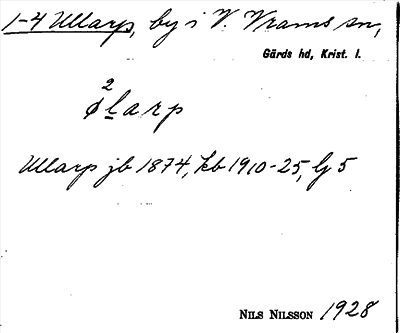 1-4 Ullarp, by i V. Vrams sn,
Gärds hd, Krist. l.
2
ølarp
Ullarp jb 1874, kb 1910-25, lj 5
NILS NILSSON 1928